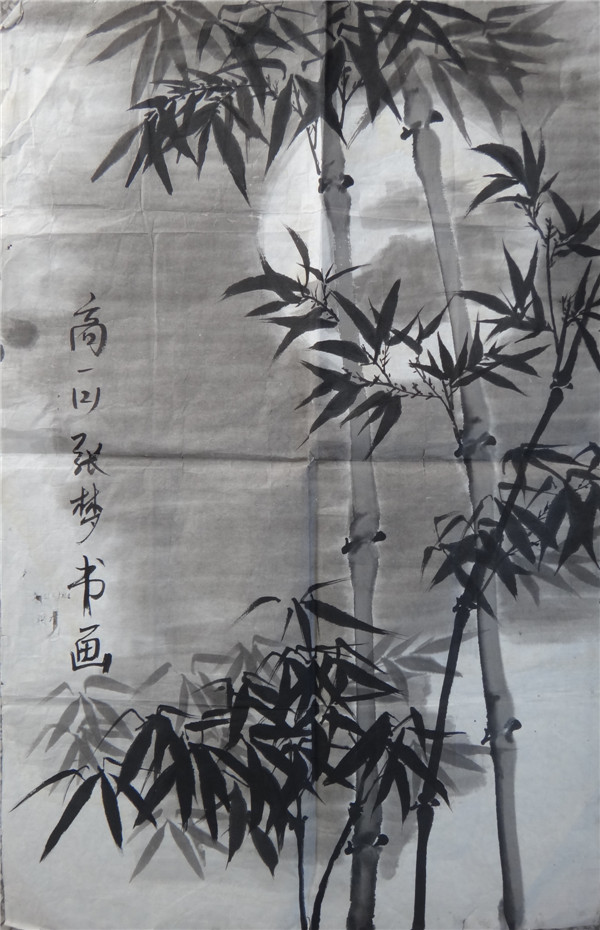 高一四张梦书画